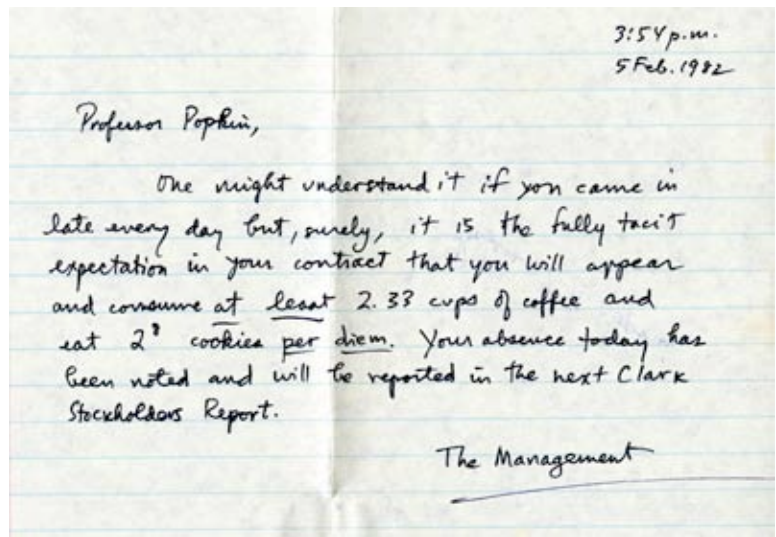 3:54 p.m.
5 Feb. 1982
Professor Popkin,
One might understand it if you came in
late every day but, surely, it is the fully tacit
expectation in your contract that you will appear
and consume at least 2.33 cups of coffee and
eat 2⁸ cookies per diem. Your absence today has
been noted and will be reported in the next Clark
Stockholders Report.
The Management